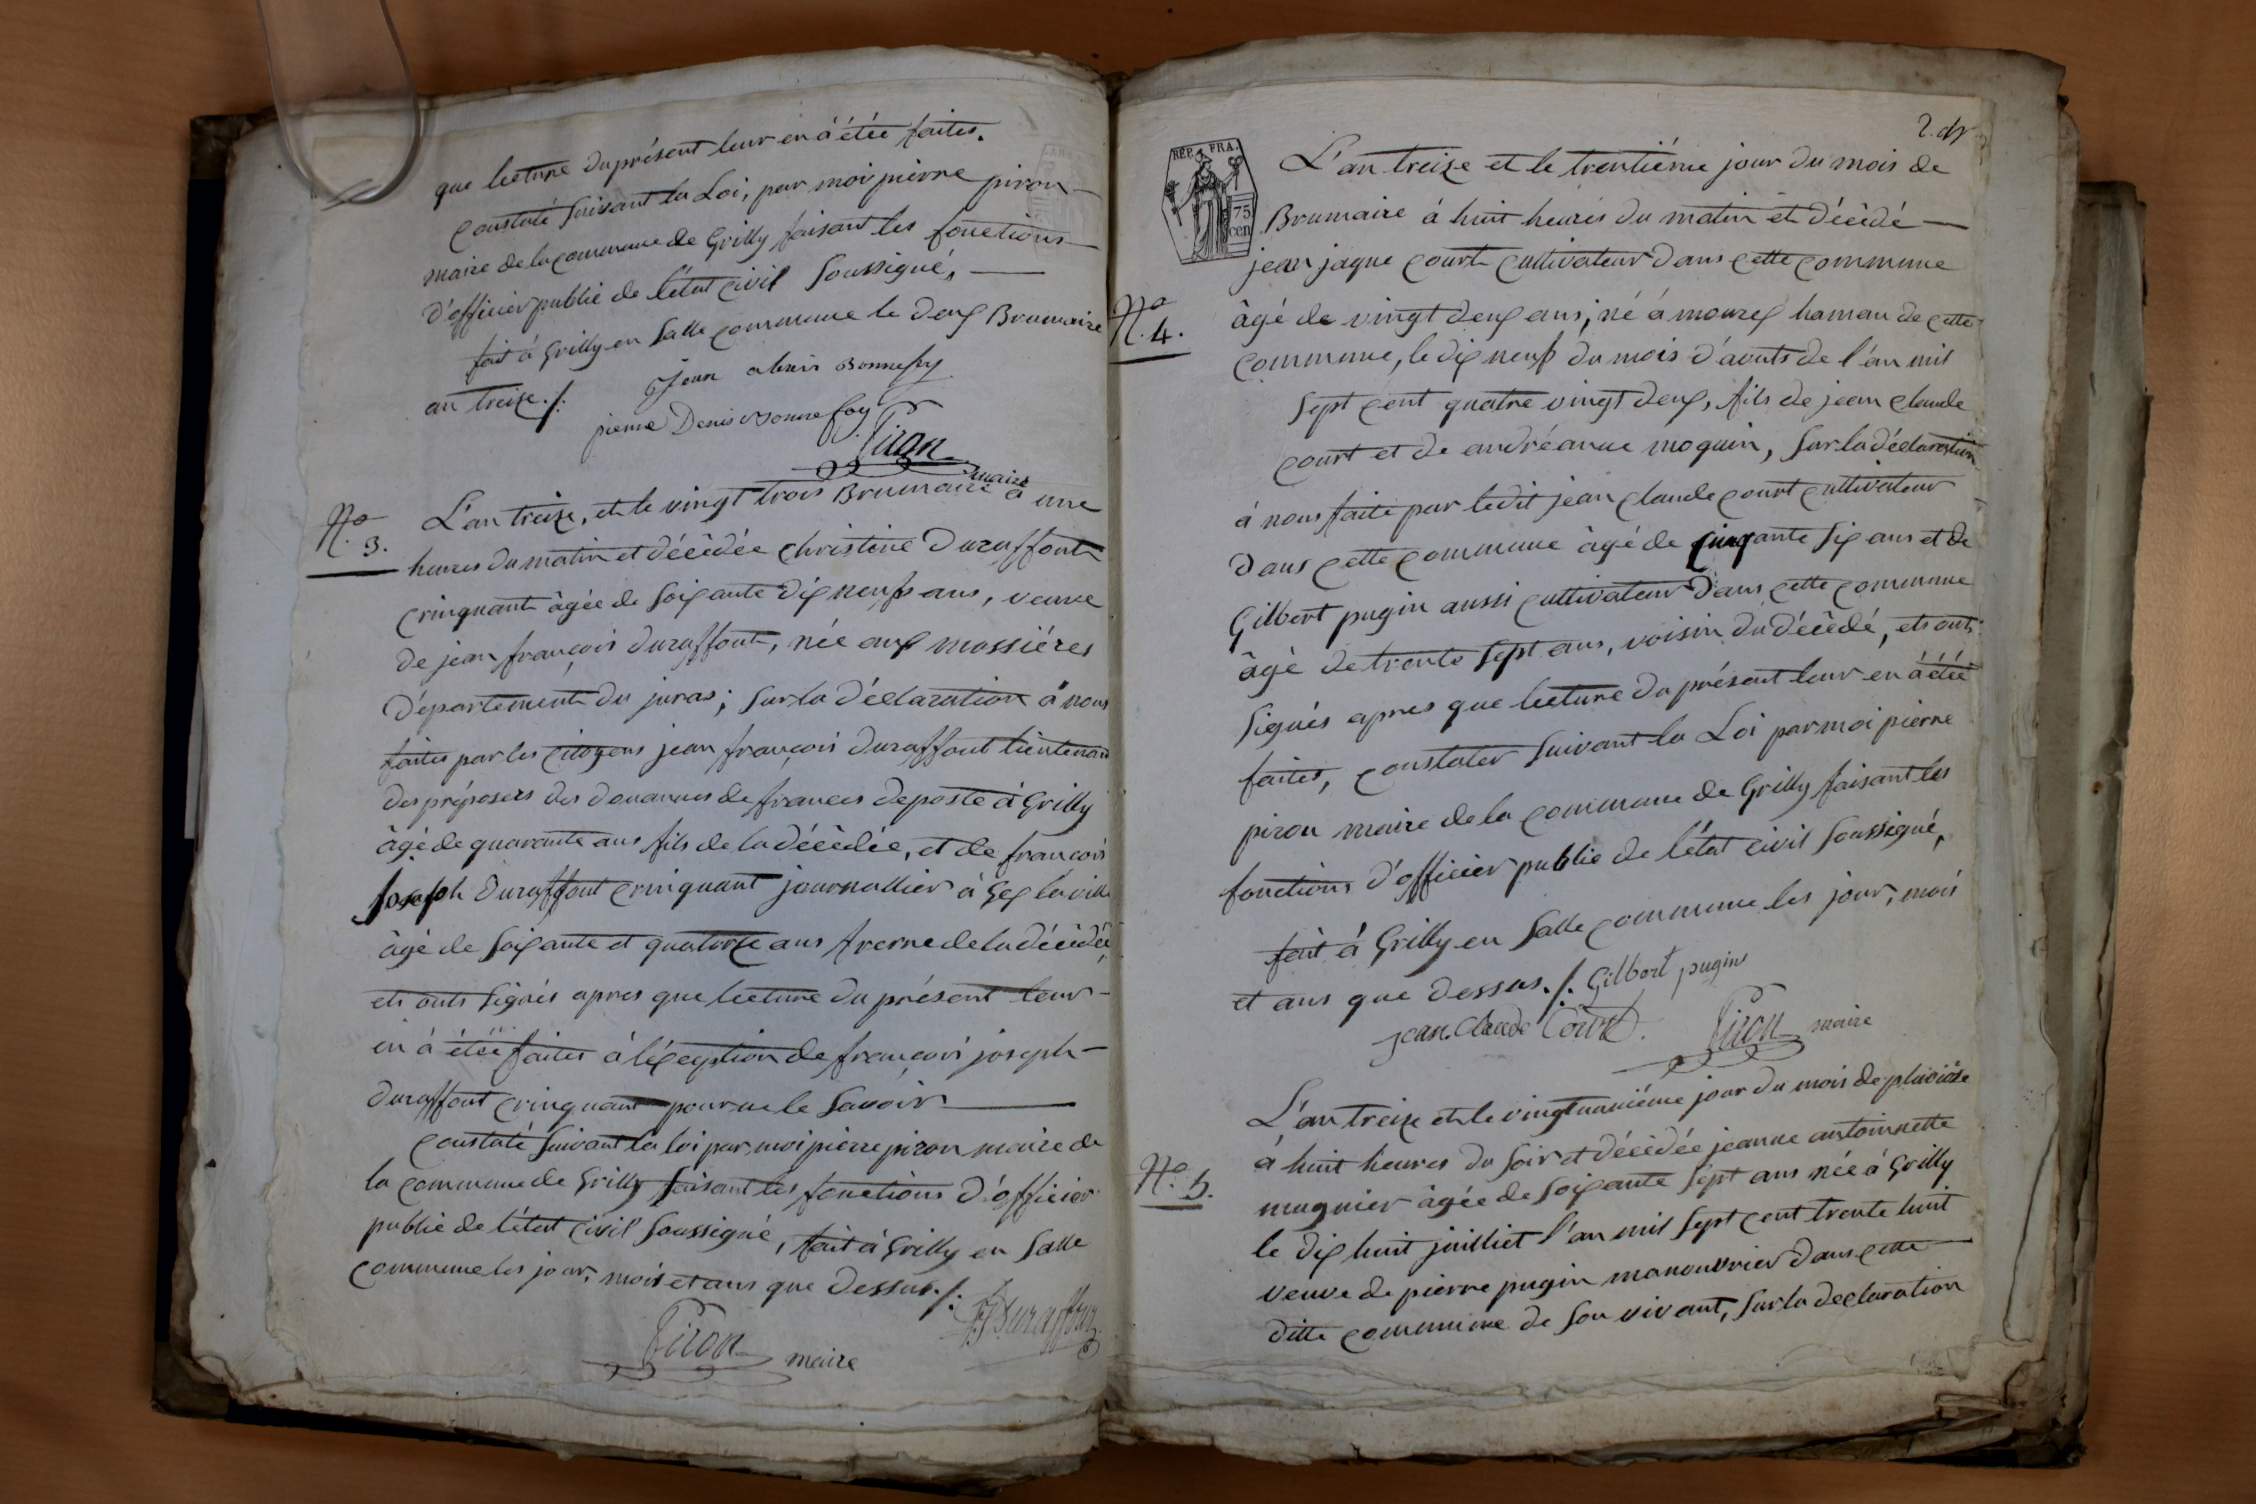 que lecture du présent leur en à étée faites.
Constaté suivant la Loi, par moi pierre piron
maire de la commune de Grilly faisant les fonctions
d'officier public de l'état civil soussigné,
fait à Grilly en salle commune le deux Brumaire
an treize ./.
Jean
pierre Denis Bonnefoy
Piron
maire
N.o 3.
L'an treize, et le vingt trois Brumaire à une
heures du matin et décèdée christine Duraffout
crinquant âgée de soixante dix neufs ans, veuve
de jean françois duraffout, née aux massiéres
département du juras; sur la déclaration à nous
faites par les citoyens jean françois duraffout lieutenant
des préposers des douannes de frances de poste à Grilly
âgé de quarante ans fils de la décèdée, et de françois
joseph duraffout crinquant journallier à Gex la ville
âgé de soixante et quatorze ans frerre de la décèdée,
ets onts signés apres que lecture du présent leur
en à étée faites à léxception de françois joseph
duraffout crinquant pour ne le savoir
Constaté suivant la loi par moi pierre piron maire de
la commune de Grilly faisant les fonctions d'officier
public de l'état civil soussigné, fait à Grilly en salle
commune les jour, mois et ans que dessus ./.
Duraffour
Piron maire
2.
REP. FRA.
75
cen
L'an treize et le trentiéme jour du mois de
Brumaire à huit heures du matin et décèdé
jean jaque court cultivateur dans cette commune
N.o 4.
âgé de vingt deux ans, né à mourex haman de cette
commune, le dix neuf du mois d'aouts de l'an mil
sept cent quatre vingt deux, fils de jean claude
court et de andréanne moquin, sur la déclaration
à nous faite par ledit jean claude court cultivateur
dans cette commune âgé de cinqante six ans et de
Gilbert pugin aussi cultivateur dans cette commune
âgé de trente sept ans, voisin du décèdé, ets onts
signés apres que lecture du présent leur en à étée
faites, constater suivant la Loi par moi pierre
piron maire de la commune de Grilly faisant les
fonctions d'officier public de l'état civil soussigné,
fait à Grilly en salle commune les jour, mois
et ans que dessus ./. Gilbert pugin
jean Claude Court. Piron maire
L'an treize et le vingt unniéme jour du mois de pluviôse
à huit heures du soir et décèdée jeanne antoinnette
N.o 5.
mugnier âgée de soixante sept ans née à Grilly
le dix huit juilliet l'an mil sept cent trente huit
veuve de pierre pugin manouvrier dans cette
ditte commune de son vivant, sur la declaration